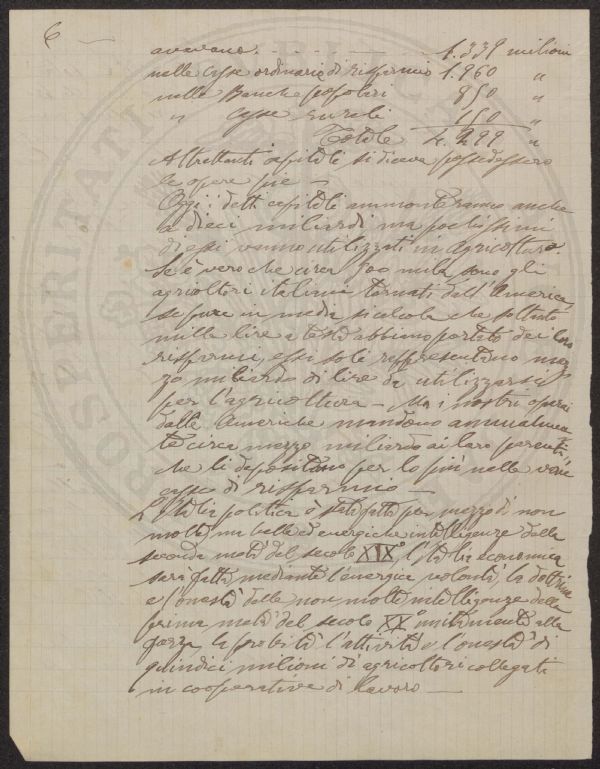 6 —
avevano . - - - - - — 1.339 milioni
nelle casse ordinarie di risparmio 1.960 "
nelle Banche popolari 850 "
" casse rurali 150 "
Totale 4.299 "
Altrettanti capitali si diceva possedessero
le opere pie —
Oggi i detti capitali ammonteranno anche
a dieci miliardi ma pochissimi
di essi vanno utilizzati in Agricoltura.
Se è vero che circa 500 mila sono gli
agricoltori italiani tornati dall'America,
se pure in media si calcola che soltanto
mille lire a testa abbiano portato dei loro
risparmi, essi soli rappresentano mez
zo miliardo di lire da utilizzarsi
per l'agricoltura — Ma i nostri operai
dalle Americhe mandano annualmen
te circa mezzo miliardo ai loro parenti,
che li depositano per lo più nelle varie
casse di risparmio —
L'Italia politica è stata fatta per mezzo di non
molte ma belle ed energiche intelligenze della
seconda metà del secolo XIX°, l'Italia economica
sarà fatta mediante l'energica volontà, la dottrina
e l'onestà delle non molte intelligenze della
prima metà del secolo XX° unitamente alla
forza, la probità l'attività e l'onestà di
quindici milioni di agricoltori collegati
in cooperative di lavoro —
PROSPERITATI